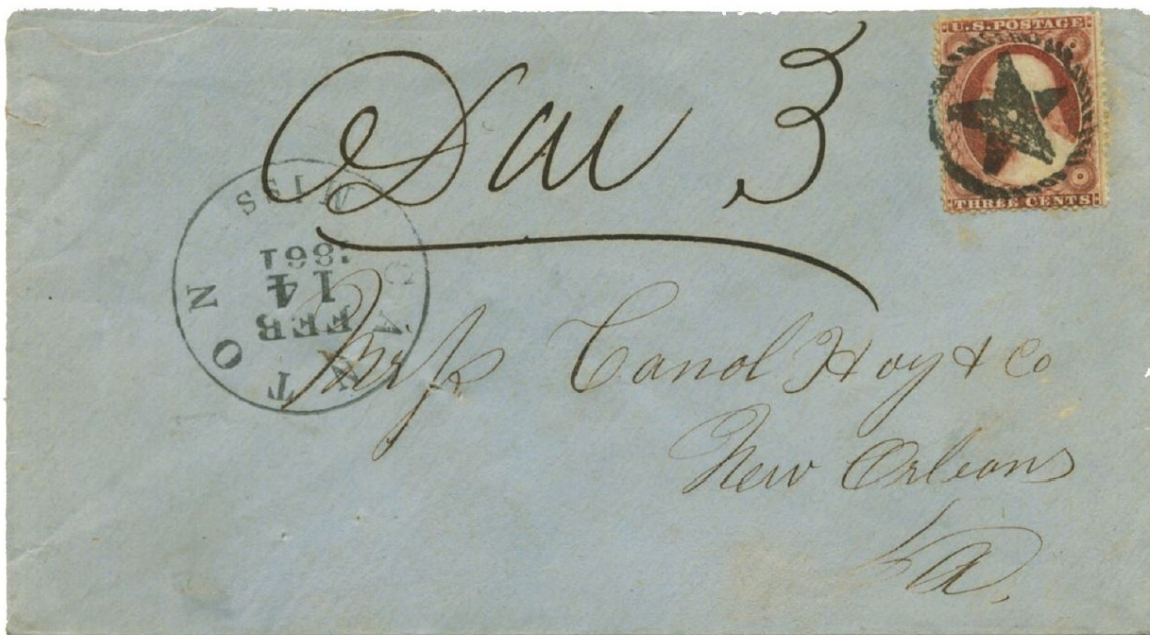 U.S. POSTAGE
Due 3
THREE CENTS
CANTON MISS
FEB
14
1861
Carrol Hoy & Co
New Orleans
La.